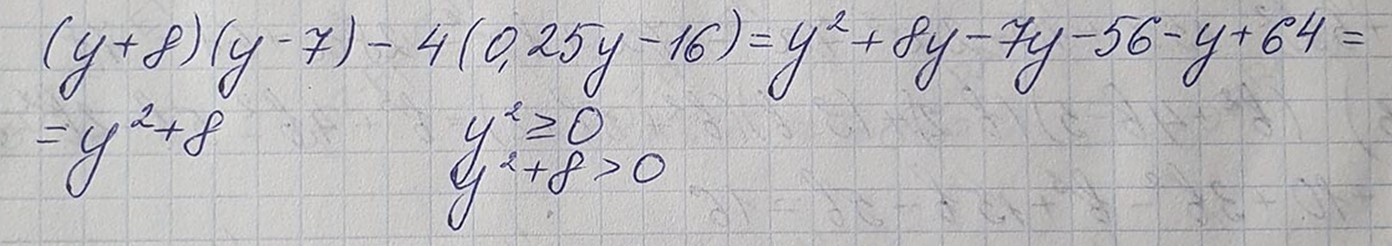 (y+8)(y-7) - 4(0,25y-16) = y²+8y-7y-56-y+64 =
= y²+8 y² ≥ 0
y²+8 > 0